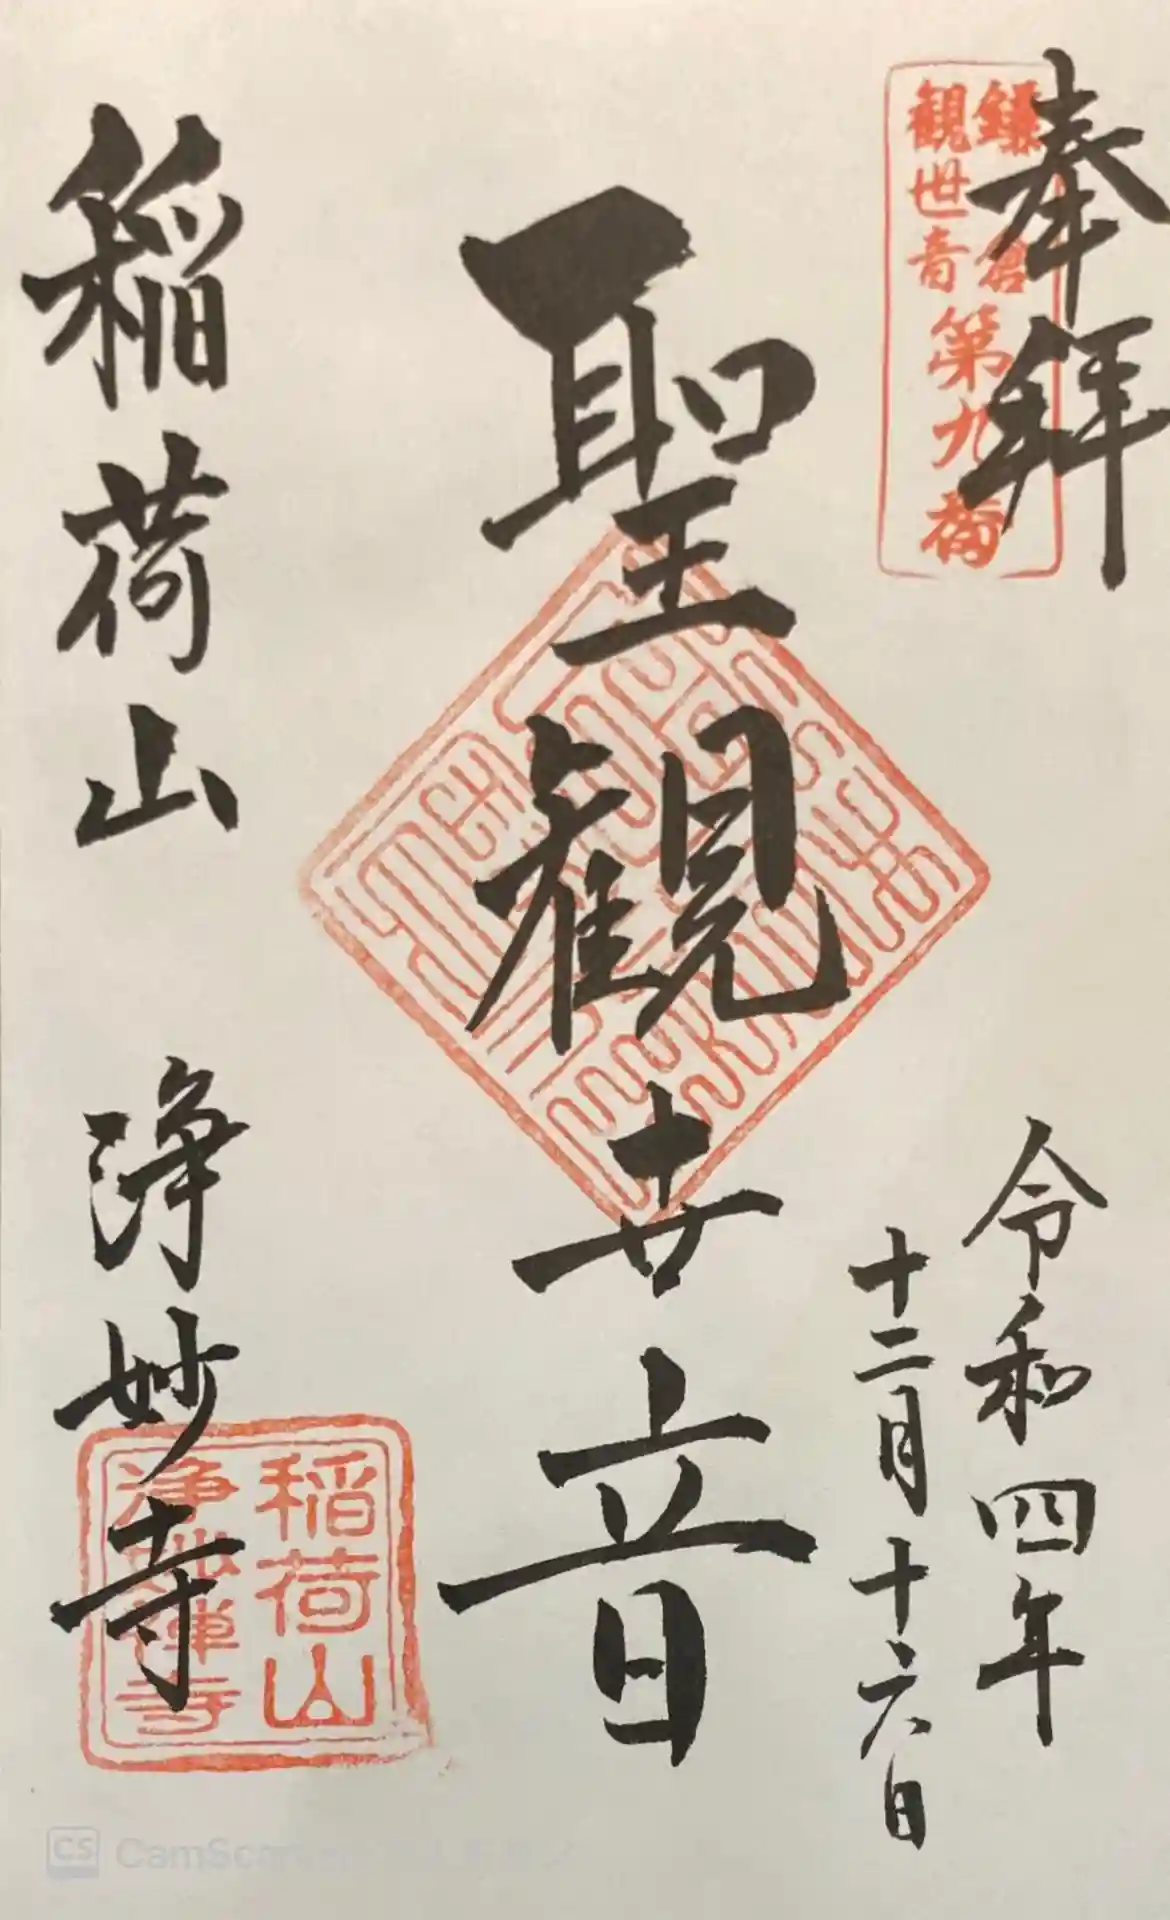 奉拝
鎌倉
観世音
第九番
令和四年
十二月十六日
聖観世音
稲荷山 浄妙寺
稲荷山
浄妙禅寺
CS CamScanner